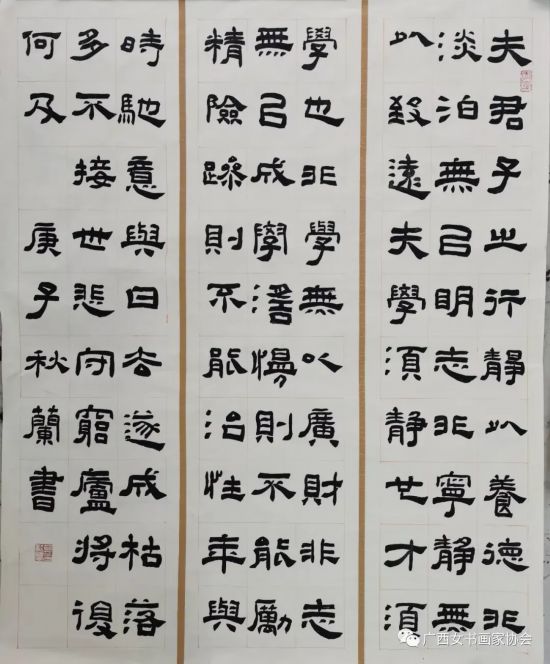 夫君子之行靜以養德非
淡泊無以明志非寧靜無
以致遠夫學須靜也才須
學也非學無以廣財非志
無以成學淫慢則不能勵
精險躁則不能治性年與
時馳意與日去遂成枯落
多不接世悲守窮廬將復
何及 庚子秋蘭書
广西女书画家协会